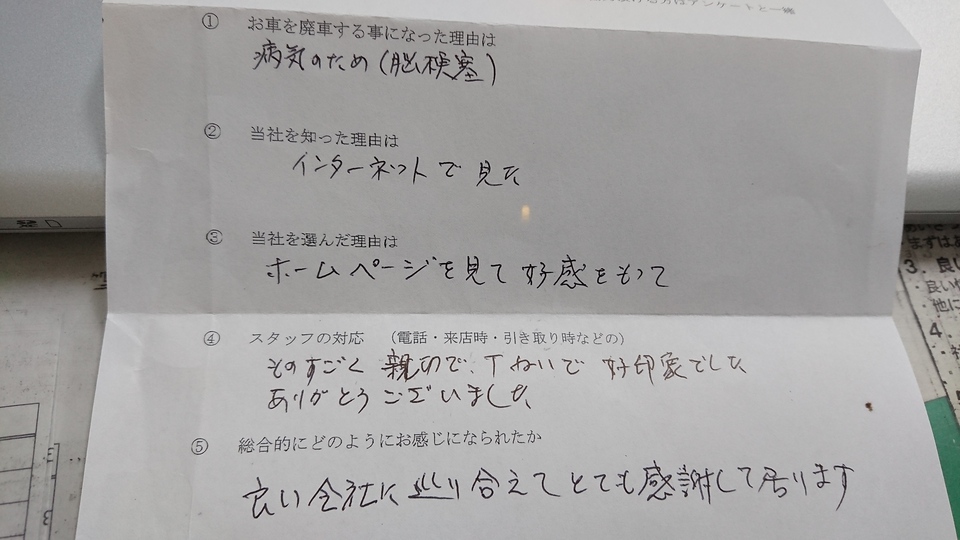 ① お車を廃車する事になった理由は
病気のため(脳梗塞)
② 当社を知った理由は
インターネットで見た
③ 当社を選んだ理由は
ホームページを見て好感をもって
④ スタッフの対応 (電話・来店時・引き取り時などの)
ものすごく親切で、丁ねいで好印象でした
ありがとうございました
⑤ 総合的にどのようにお感じになられたか
良い会社に巡り合えてとても感謝して居ります
まずは
3. 良い
・良い
・他に
4